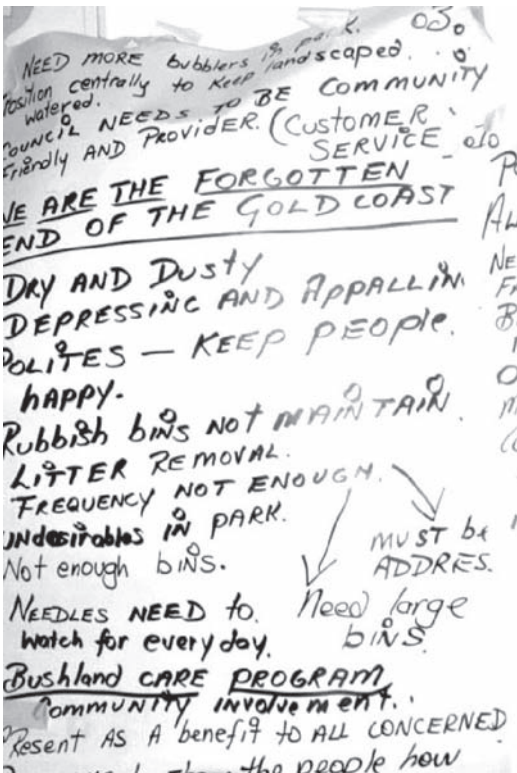 NEED MORE bubblers in park.
Position centrally to Keep landscaped.
watered.
COUNCIL NEEDS TO BE COMMUNITY
Friendly AND PROVIDER. (CUSTOMER
SERVICE
WE ARE THE FORGOTTEN
END OF THE GOLD COAST
DRY AND DUSTY
DEPRESSING AND APPALLIN
POLITES — KEEP PEOPLE.
hAPPY.
Rubbish bins NOT MAINTAIN.
LITTER REMOVAL.
FREQUENCY NOT ENOUGH.
UNdesirables IN PARK.
Not enough bins.
MUST be
ADDRES.
NEEDLES NEED to.
watch for every day.
Need large
bins.
Bushland CARE PROGRAM
Community involvement.
Present AS A benefit TO ALL CONCERNED
the people how